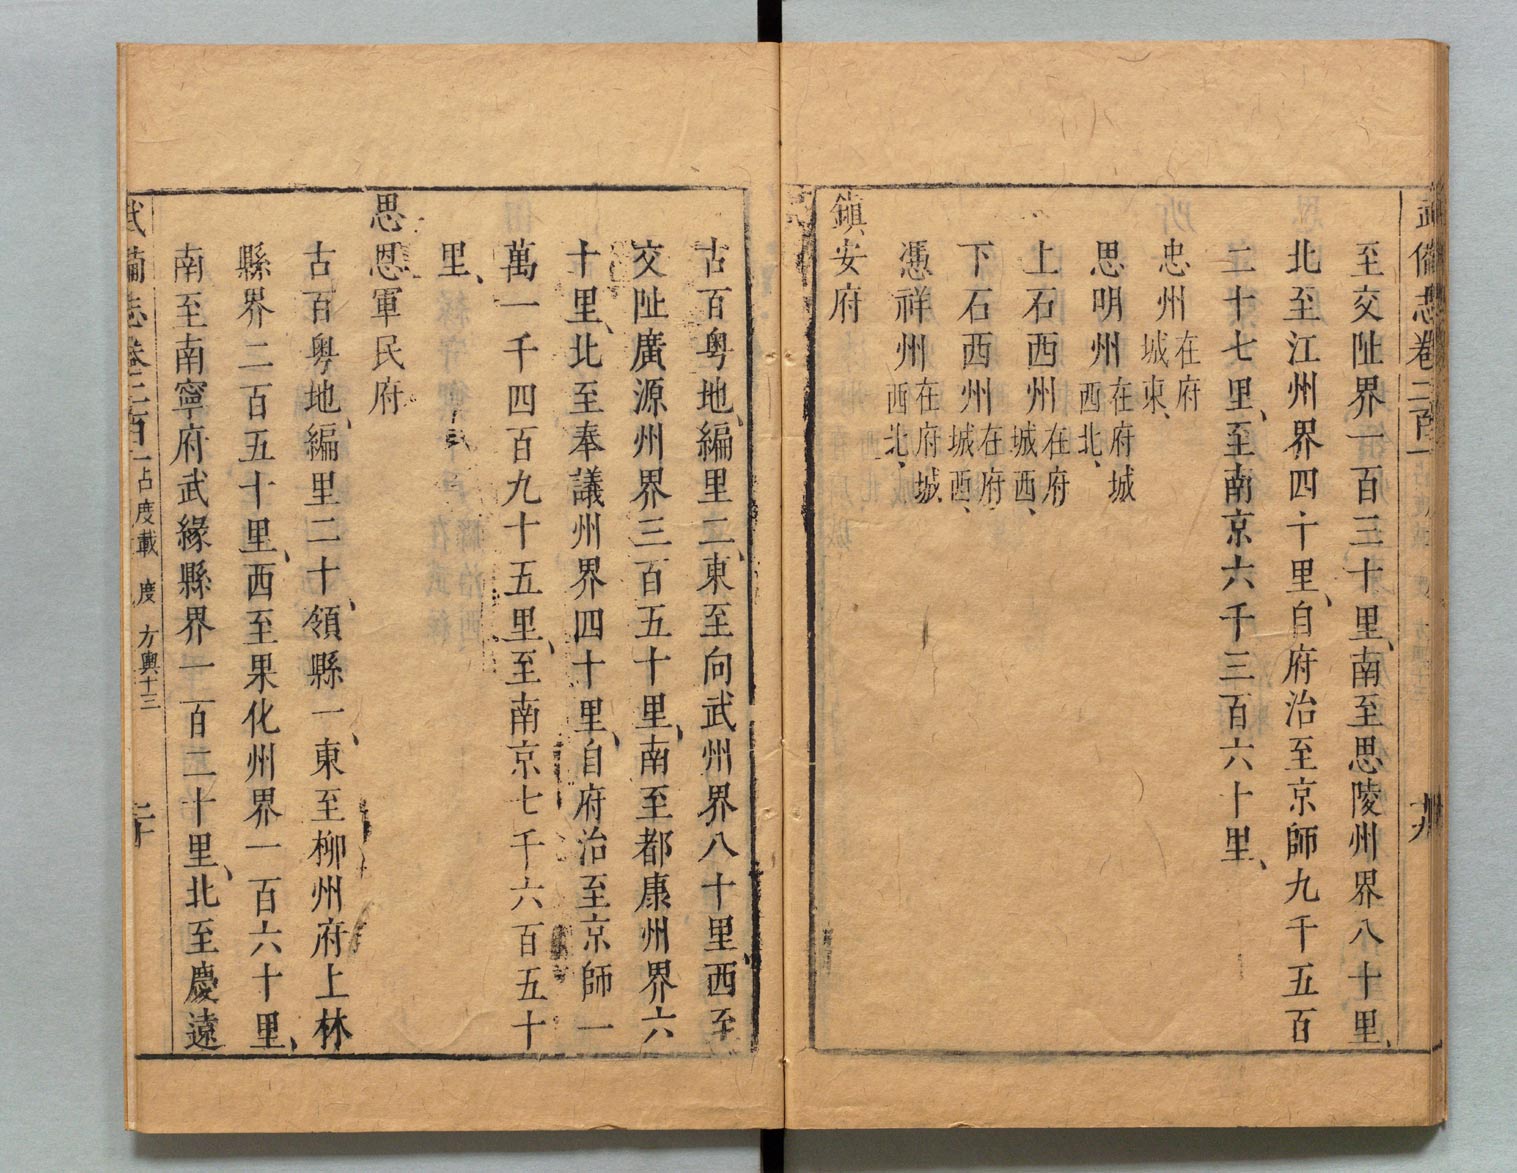 武備志卷二百一
至交阯界一百三十里南至思陵州界八十里
北至江州界四十里自府治至京師九千五百
二十七里至南京六千三百六十里
忠州在府城東
思明州在府城西北
上石西州在府城西
下石西州在府城西
憑祥州在府城西北
鎮安府
古百粤地編里二東至向武州界八十里西至
交阯廣源州界三百五十里南至都康州界六
十里北至奉議州界四十里自府治至京師一
萬一千四百九十五里至南京七千六百五十
里
思恩軍民府
古百粤地編里二十領縣一東至柳州府上林
縣界二百五十里西至果化州界一百六十里
南至南寧府武緣縣界一百二十里北至慶遠
武備志卷二百一 占度載 度 方輿十三 二十